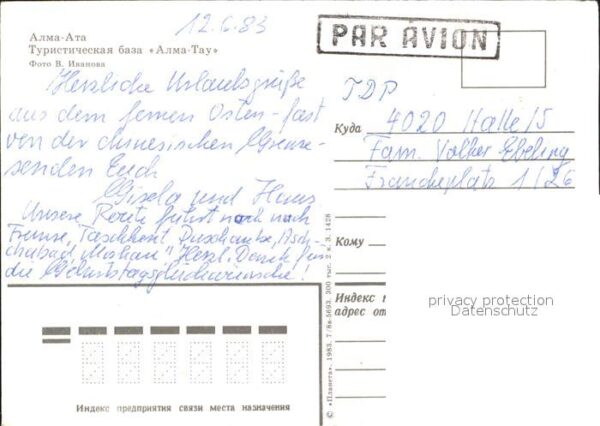 12.6.83
Алма-Ата
Туристическая база «Алма-Тау»
Фото В. Иванова
Herzliche Urlaubsgrüße
aus dem fernen Osten - fast
von der chinesischen Grenze -
senden Euch
Gisela und Hans
Unsere Route führt noch nach
Frunse, Taschkent, Duschanbe, Asch-
chabad, Moskau. Herzl. Dank für
die Geburtstagsglückwünsche!
PAR AVION
Куда
4020 Halle/5
Fam. Volker Ebeling
Franckeplatz 1/26
Кому
Индекс п
адрес от
privacy protection
Datenschutz
Индекс предприятия связи места назначения
© «Планета». 1983. 7/8а-5693. 300 тыс. 2 к. З. 1428